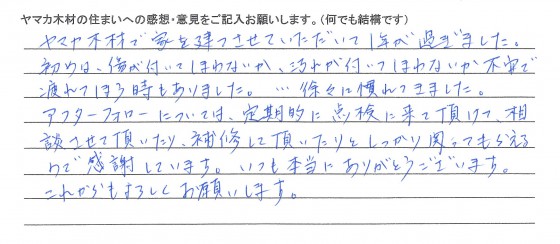 ヤマカ木材の住まいへの感想・意見をご記入お願いします。(何でも結構です)
ヤマカ木材で家を建てさせていただいて1年が過ぎました。
初めは、傷が付いてしまわないか、汚れが付いてしまわないか不安で
疲れてしまう時もありました。…徐々に慣れてきました。
アフターフォローについては、定期的に点検に来て頂けて、相
談させて頂いたり、補修して頂いたりとしっかり関ってもらえる
ので感謝しています。いつも本当にありがとうございます。
これからもよろしくお願いします。